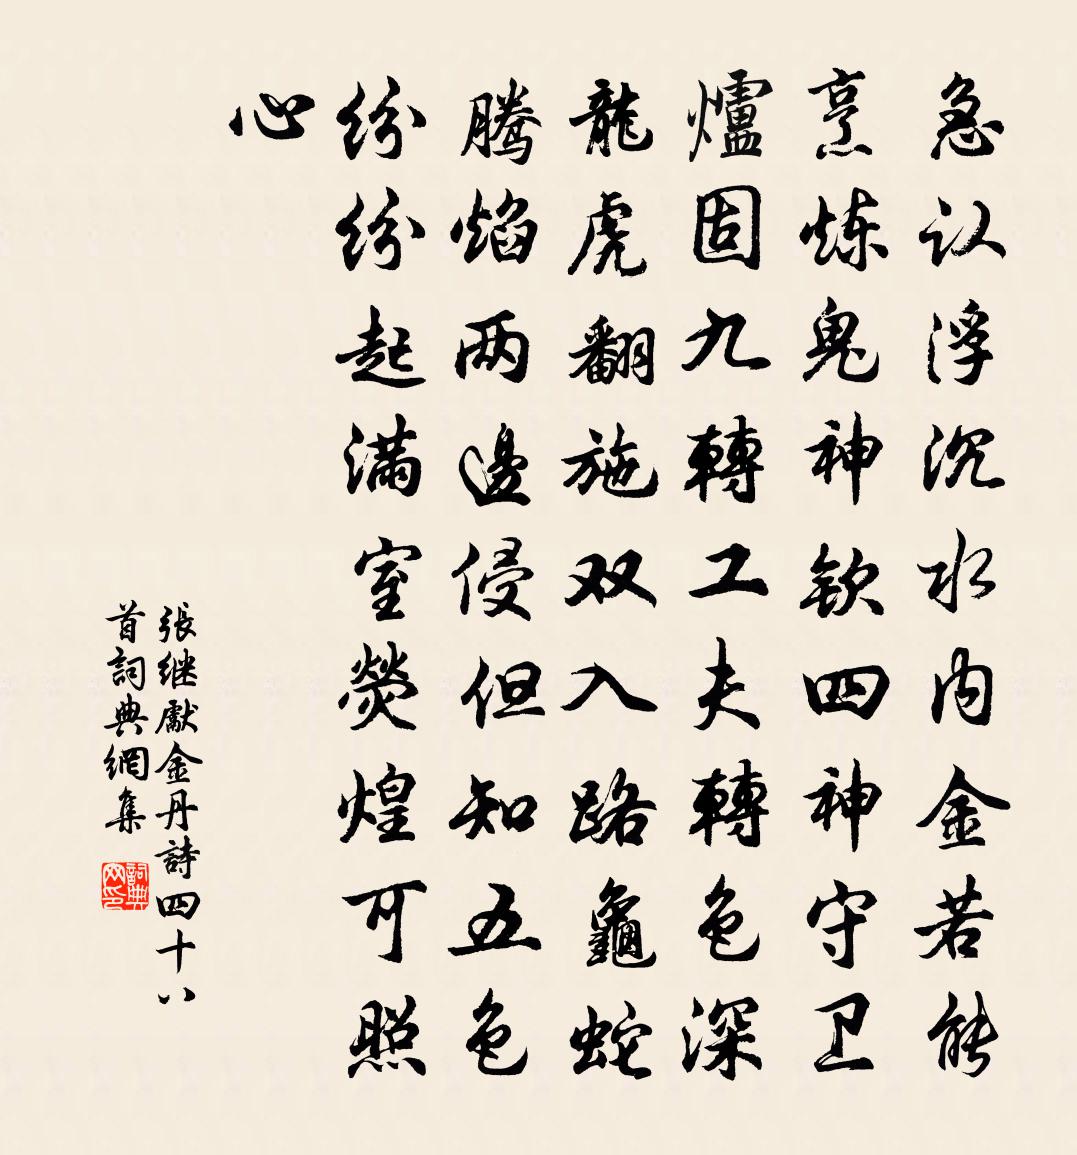 急认浮沉水内金若能
烹炼鬼神欽四神守卫
爐固九轉工夫轉色深
龍虎翻施双入路龜蛇
腾焰两邊侵但知五色
纷纷起满室熒煌可照
心
張继獻金丹詩四十八
首詞典網集
詞典网印